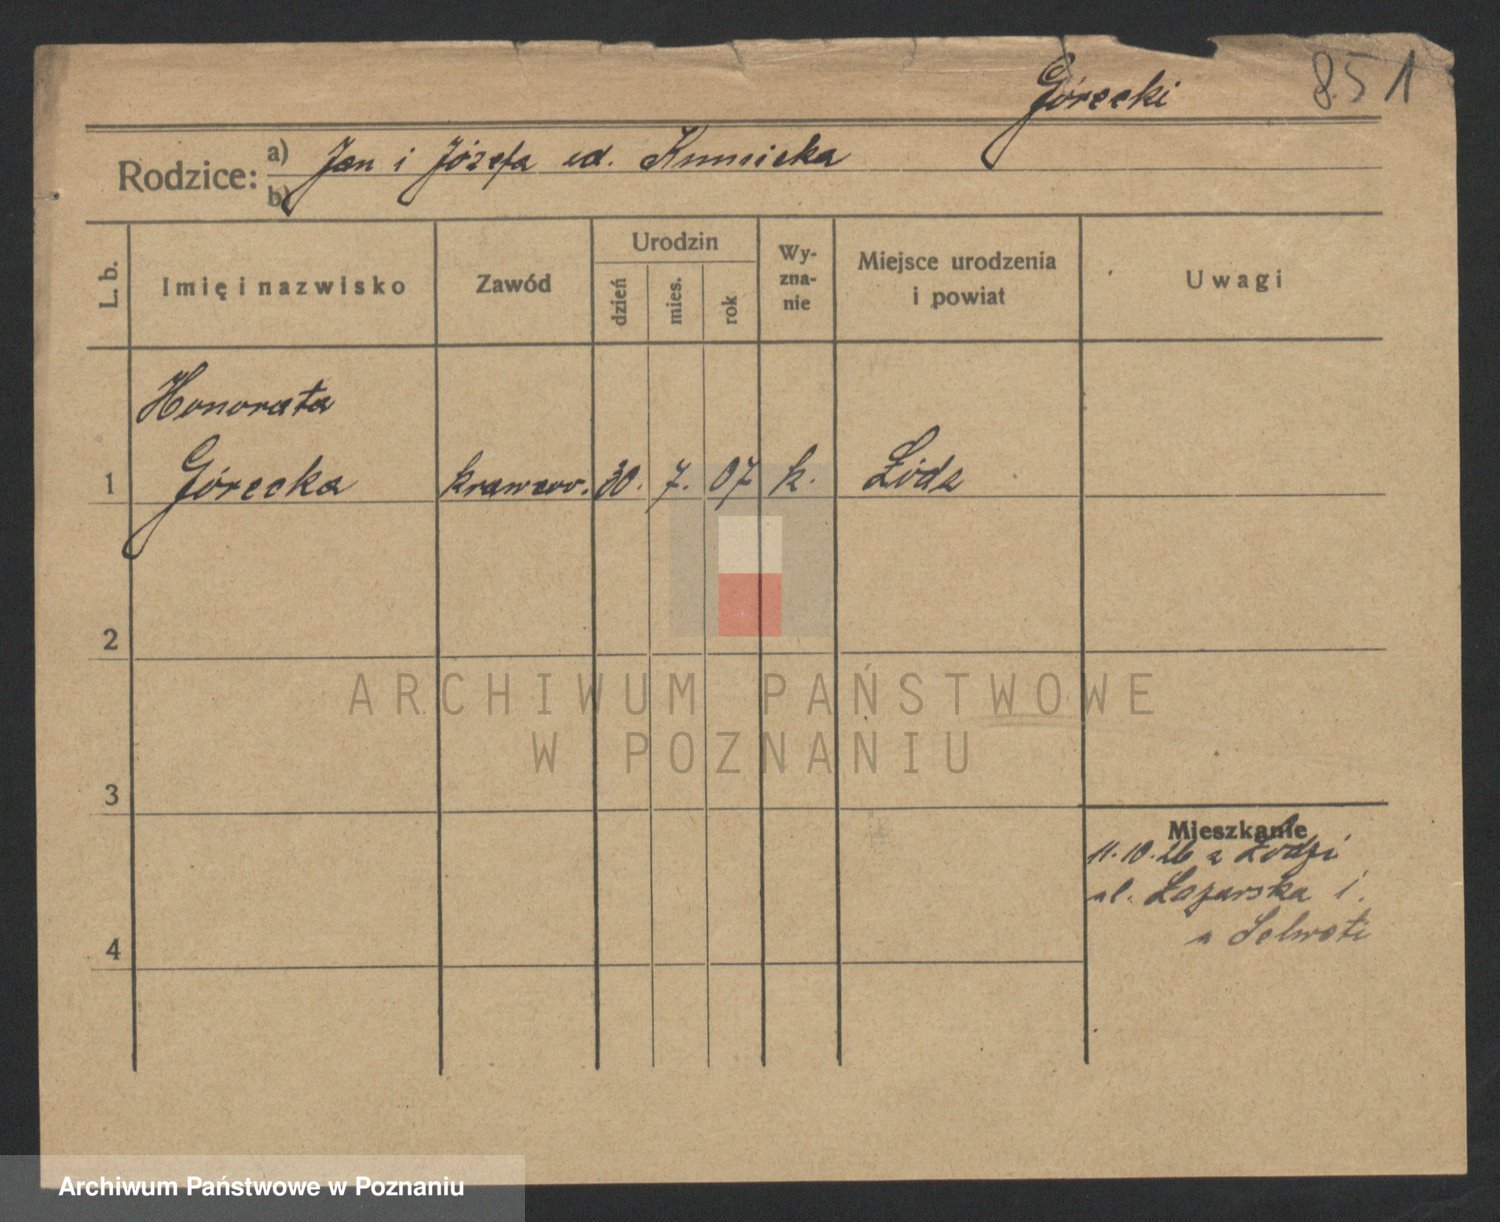 Górecki 851
Rodzice: a) Jan i Józefa ud. Kunicka
b)
L. b.
Imię i nazwisko
Zawód
Urodzin
dzień
mies.
rok
Wy-
zna-
nie
Miejsce urodzenia
i powiat
Uwagi
Honorata
1 Górecka krawcow. 30. 7. 07 k. Łódz
2
ARCHIWUM PAŃSTWOWE
W POZNANIU
3
Mieszkanie
11.10.26 z Łodzi
ul. Łazarska 1.
4
Archiwum Państwowe w Poznaniu